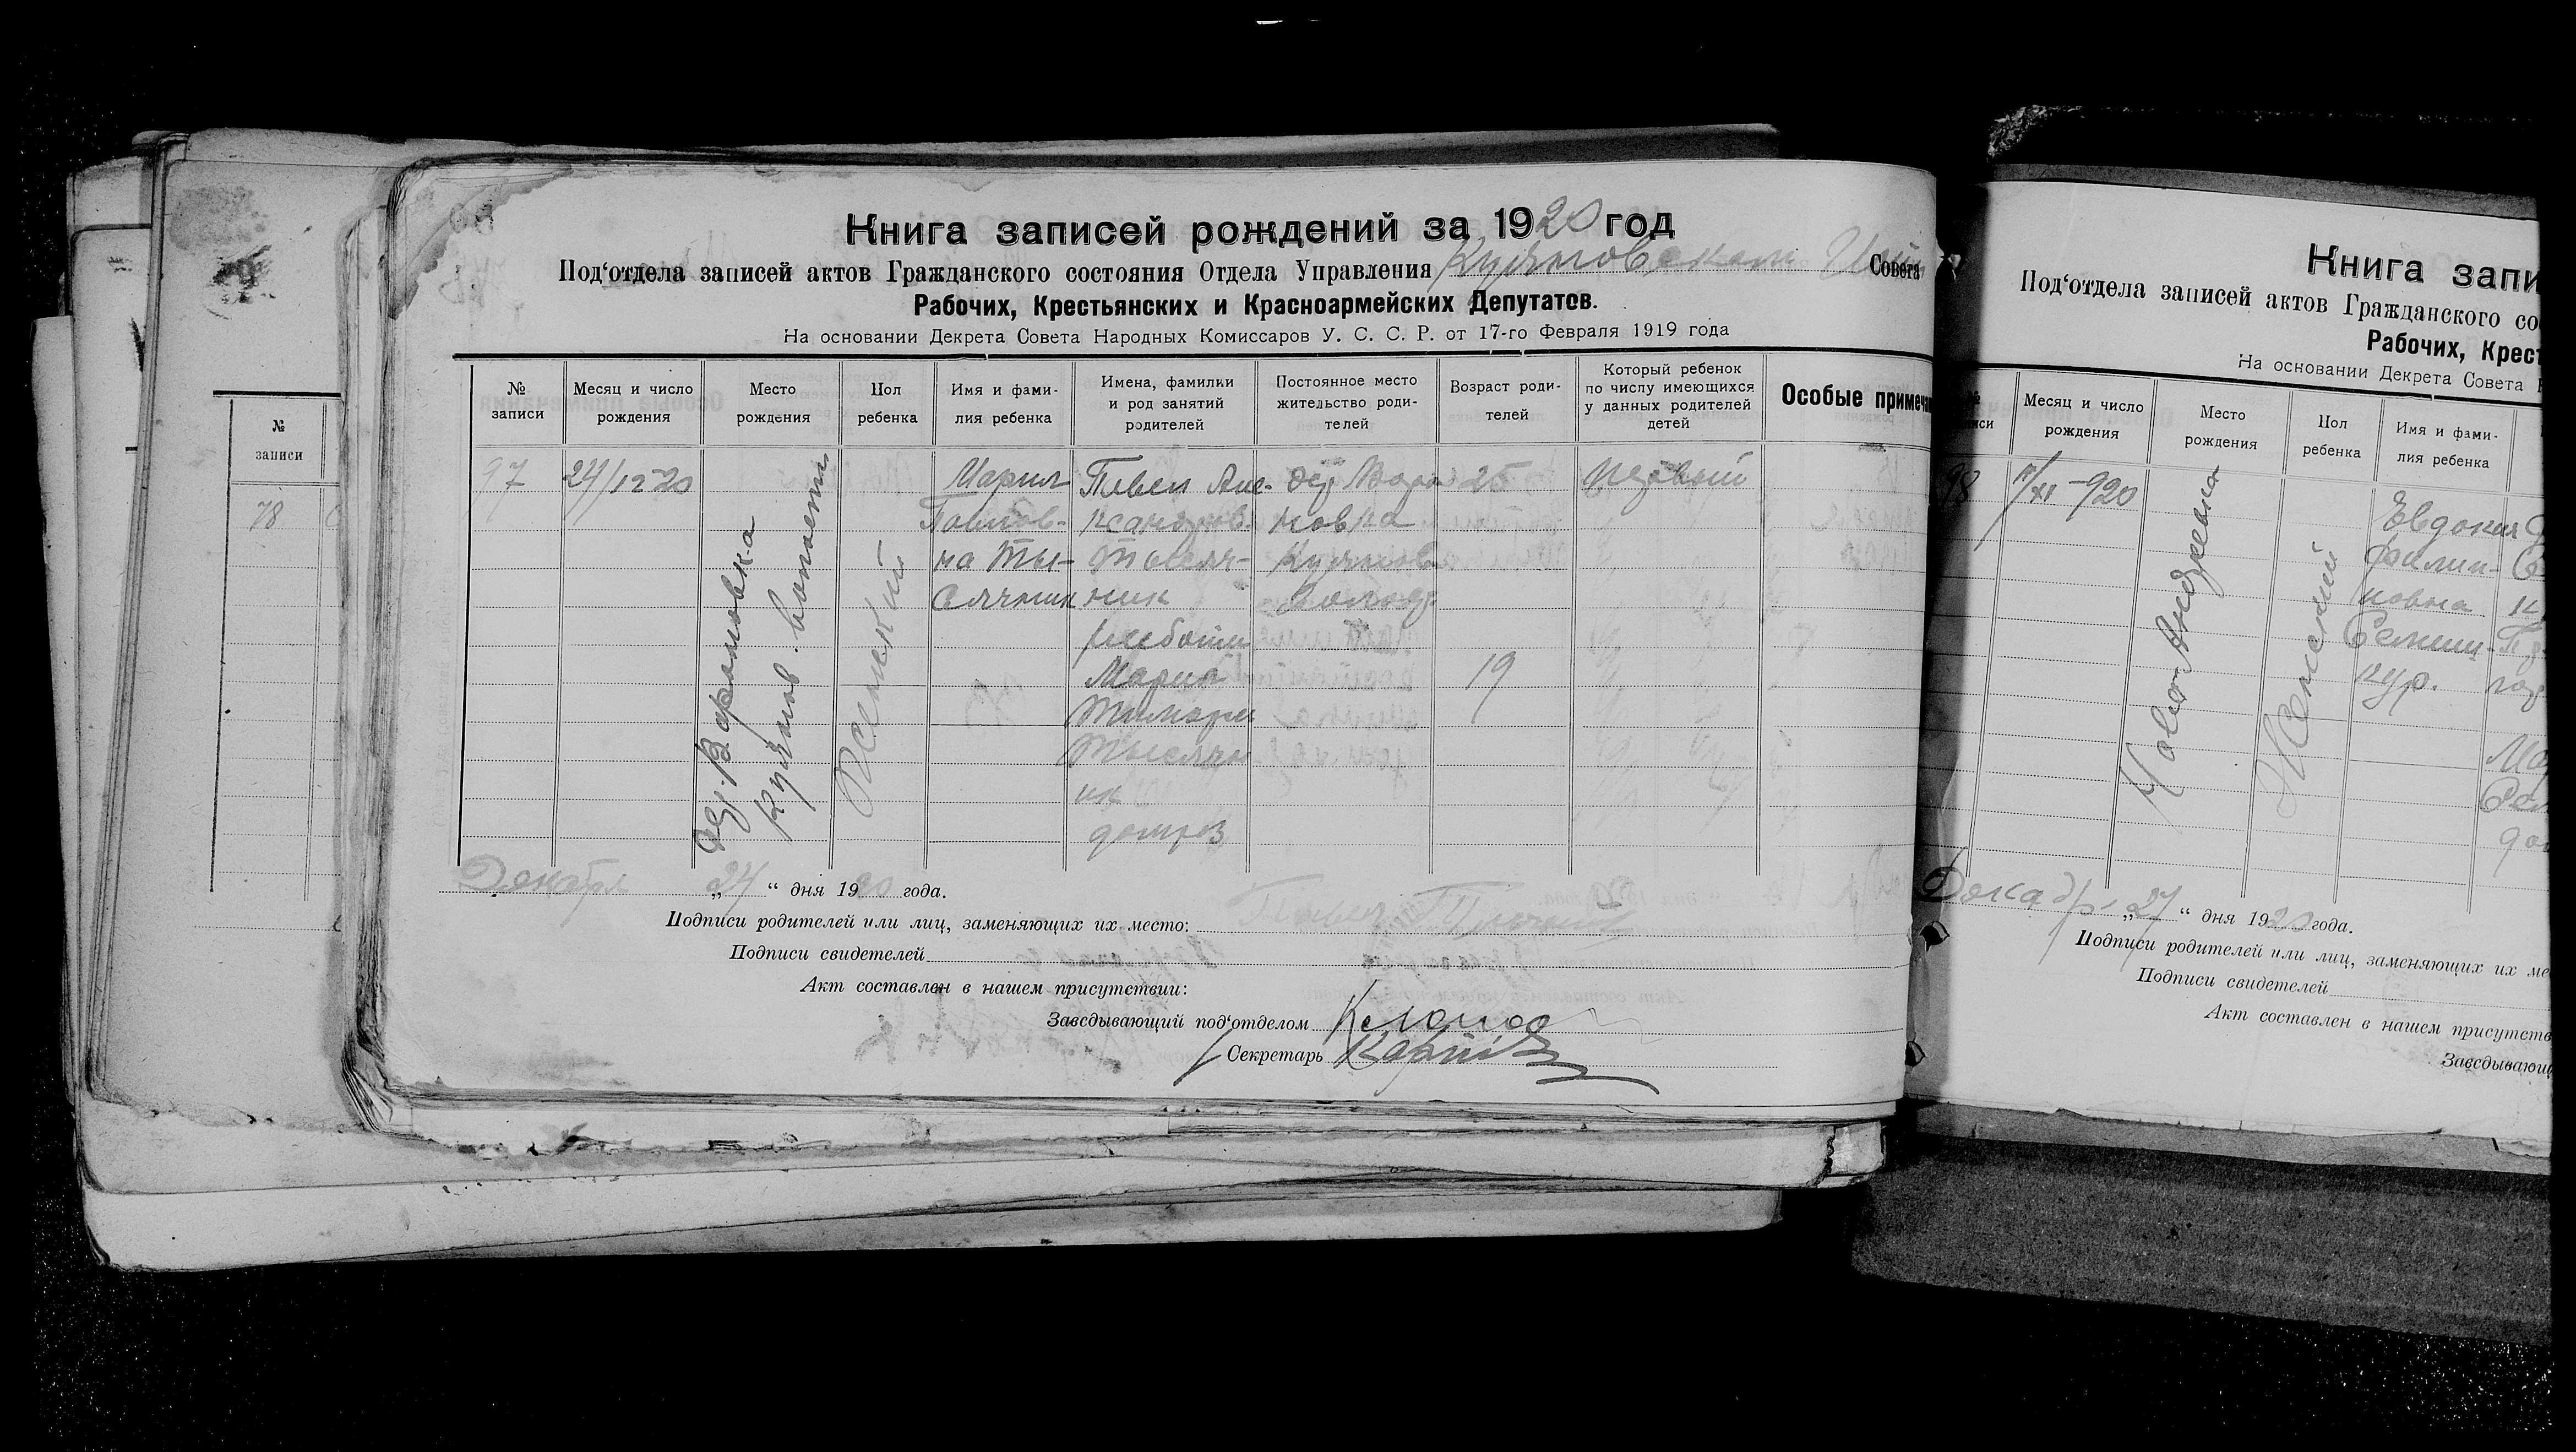 Книга записей рождений за 1920 год
Под'отдела записей актов Гражданского состояния Отдела Управления Совета
Рабочих, Крестьянских и Красноармейских Депутатов.
На основании Декрета Совета Народных Комиссаров У. С. С. Р. от 17-го Февраля 1919 года
№ записи
Месяц и число рождения
Место рождения
Пол ребенка
Имя и фамилия ребенка
Имена, фамилии и род занятий родителей
Постоянное место жительство родителей
Возраст родителей
Который ребенок по числу имеющихся у данных родителей детей
Особые примеча
97
24/12 20
дер. Варамовка
Женский
Мария
Павлов-
на Ты-
Сячник
Павел Але-
ксандров.
Тысяч-
ник
хлебопа
Мария
Тысячн
ик
домохоз
дер Вара
мовка
25
19
Первый
Декабря „24“ дня 1920 года.
Подписи родителей или лиц, заменяющих их место:
Подписи свидетелей
Акт составлен в нашем присутствии:
Заведывающий под'отделом
Секретарь
№
записи
78
Книга запи
Под'отдела записей актов Гражданского со
Рабочих, Крест
На основании Декрета Совета Н
№
писи
Месяц и число
рождения
Место
рождения
Пол
ребенка
Имя и фами-
лия ребенка
98
7/XI-920
Ново-Андреевка
Женский
Евдокия
Филип-
повна
Декабр „27“ дня 1920 года.
Подписи родителей или лиц, заменяющих их ме
Подписи свидетелей
Акт составлен в нашем присутств
Заведывающ